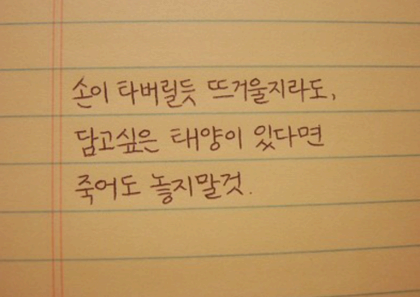 손이 타버릴듯 뜨거울지라도,
담고싶은 태양이 있다면
죽어도 놓지말것.